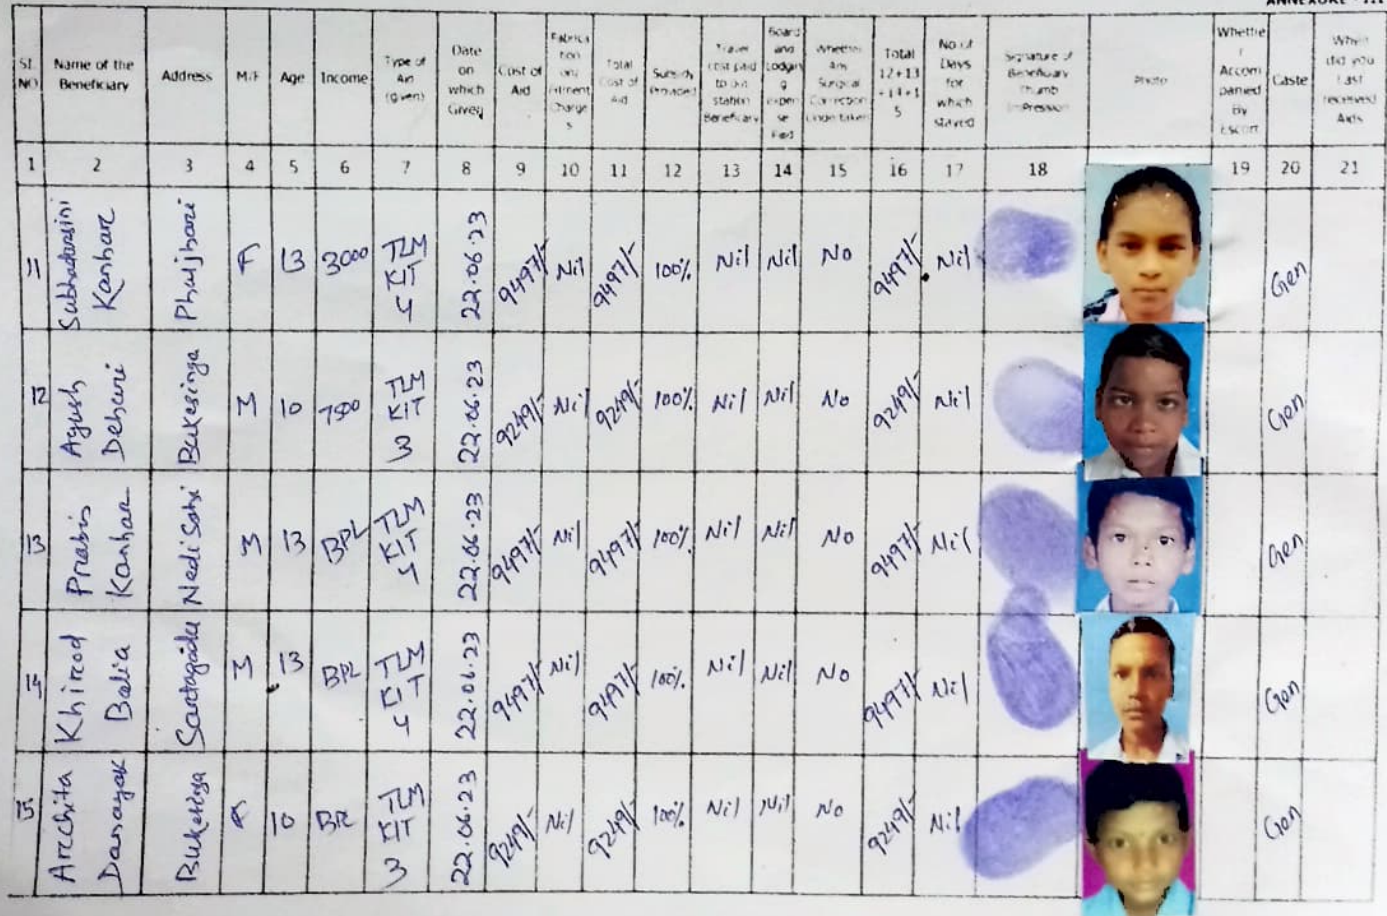 ANNEXURE - III
Sl. NO
Name of the Beneficiary
Address
M/F
Age
Income
Type of Aid (given)
Date on which Given
Cost of Aid
Fabrication and Fitment Charges
Total Cost of Aid
Subsidy Provided
Travel cost paid to out station Beneficiary
Board and Lodging expense Paid
Whether Any Surgical Correction Undertaken
Total 12+13+14+15
No of Days for which stayed
Signature of Beneficiary Thumb Impression
Photo
Whether Accompanied By Escort
Caste
When did you Last received Aids
1 2 3 4 5 6 7 8 9 10 11 12 13 14 15 16 17 18 19 20 21
11 Subhadarsini Kanhar Phuljhari F 13 3000 TLM KIT 4 22.06.23 9497/- Nil 9497/- 100% Nil Nil No 9497/- Nil Gen
12 Ayush Dehuri Bukesinga M 10 7500 TLM KIT 3 22.06.23 9249/- Nil 9249/- 100% Nil Nil No 9249/- Nil Gen
13 Prabis Kanhar Nedi Sahi M 13 BPL TLM KIT 4 22.06.23 9497/- Nil 9497/- 100% Nil Nil No 9497/- Nil Gen
14 Khirod Balia M 13 BPL TLM KIT 4 22.06.23 9497/- Nil 9497/- 100% Nil Nil No 9497/- Nil Gen
15 Archita Danayak F 10 TLM KIT 3 22.06.23 9249/- Nil 9249/- 100% Nil Nil No 9249/- Nil Gen